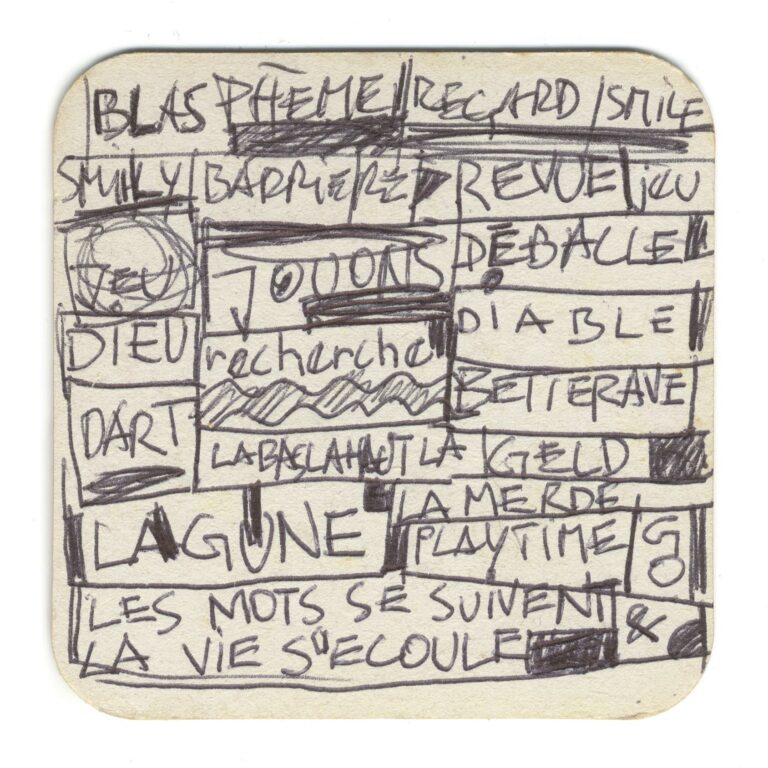 BLASPHÈME REGARD SMILE
SMILY BARRIERE REVUE jeu
JEU JOUONS DÉBALLE
DIEU recherche DIABLE
DART BETTERAVE
LABASLAHAUTLA GELD
LAGUNE LA MERDE
PLAYTIME GO
LES MOTS SE SUIVENT &
LA VIE S'ECOULE